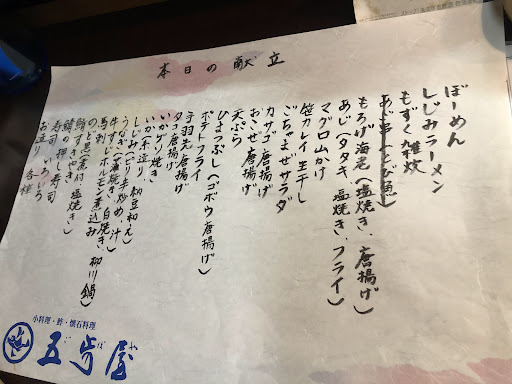 本日の献立
ぼーめん
しじみラーメン
もずく雑炊
あご串（とび魚）
もろげ海老（塩焼き、唐揚げ）
あじ（タタキ、塩焼き、フライ）
マグロ山かけ
笹カレイ生干し
ごちゃまぜサラダ
カサゴ唐揚げ
おこぜ唐揚げ
天ぷら
ひまつぶし（ゴボウ唐揚げ）
ポテトフライ
手羽先唐揚げ
タコ唐揚げ
いかゲソ焼き
いか（不造り、納豆和え）
しじみ（
うなぎ（蒲焼き、白焼き、柳川鍋）
牛すじ
馬刺
ホルモン煮込み
のど黒（煮付、塩焼き）
鯖すきやき
鯖の押し寿司
寿司いろいろ
お造り各種
小料理・鮓・懐石料理
五歩屋